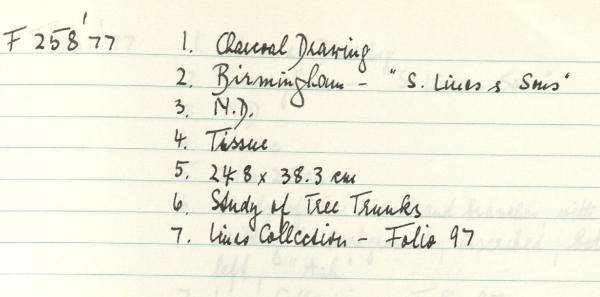 F 258'77
1. Charcoal Drawing
2. Birmingham - "S. Lines & Sons"
3. N.D.
4. Tissue
5. 24.8 x 38.3 cm
6. Study of Tree Trunks
7. Lines Collection - Folio 97